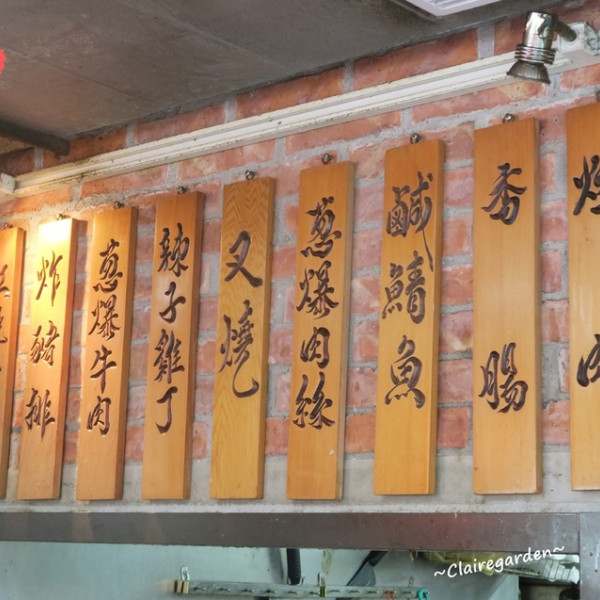 炸豬排
蔥爆牛肉
辣子雞丁
叉燒
蔥爆肉絲
鹹鯖魚
香腸
~Clairegarden~